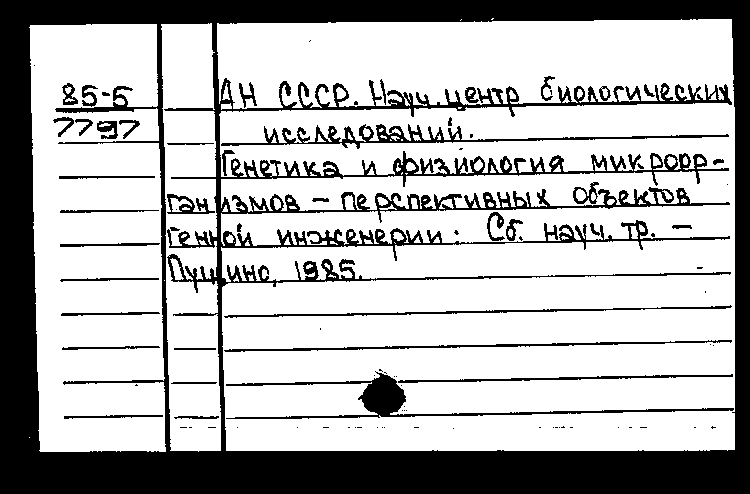 85-5 АН СССР. Науч. центр биологических
7797 исследований.
Генетика и физиология микроор-
ганизмов – перспективных объектов
генной инженерии: Сб. науч. тр. –
Пущино, 1985.